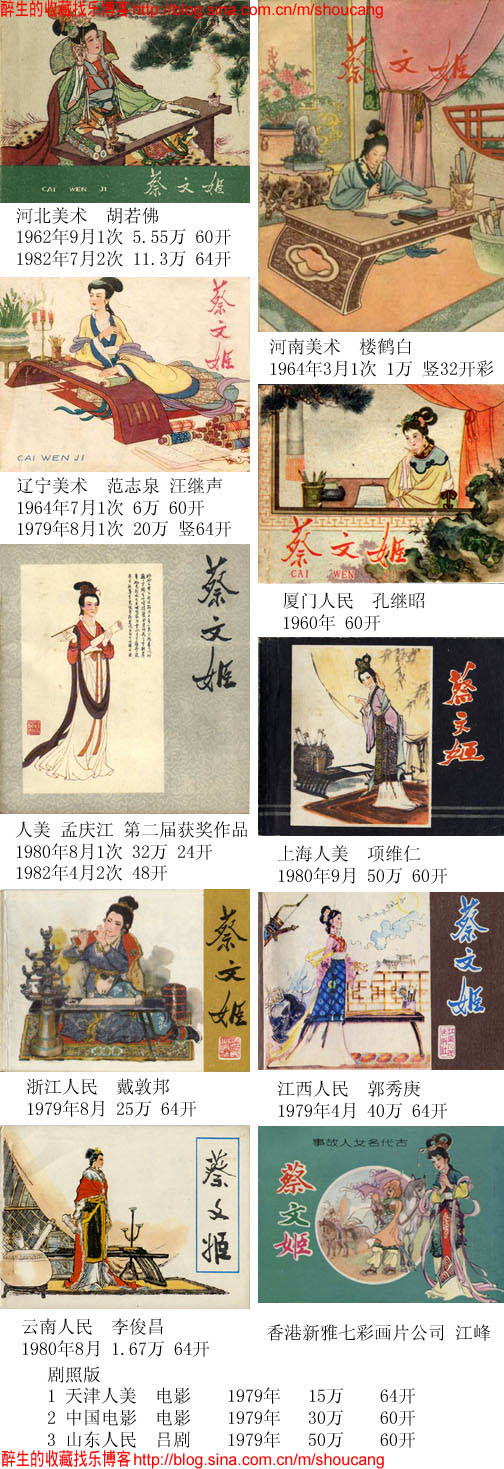 醉生的收藏找乐博客http://blog.sina.com.cn/m/shoucang
CAI WEN JI
蔡文姬
河北美术 胡若佛
1962年9月1次 5.55万 60开
1982年7月2次 11.3万 64开
蔡文姬
河南美术 楼鹤白
1964年3月1次 1万 竖32开彩
蔡文姬
CAI WEN JI
辽宁美术 范志泉 汪继声
1964年7月1次 6万 60开
1979年8月1次 20万 竖64开
蔡文姬
CAI WEN
厦门人民 孔继昭
1960年 60开
蔡文姬
人美 孟庆江 第二届获奖作品
1980年8月1次 32万 24开
1982年4月2次 48开
蔡文姬
上海人美 项维仁
1980年9月 50万 60开
蔡文姬
浙江人民 戴敦邦
1979年8月 25万 64开
蔡文姬
江西人民 郭秀庚
1979年4月 40万 64开
蔡文姬
云南人民 李俊昌
1980年8月 1.67万 64开
事故人女名代古
蔡文姬
香港新雅七彩画片公司 江峰
剧照版
1 天津人美 电影 1979年 15万 64开
2 中国电影 电影 1979年 30万 60开
3 山东人民 吕剧 1979年 50万 60开
醉生的收藏找乐博客http://blog.sina.com.cn/m/shoucang